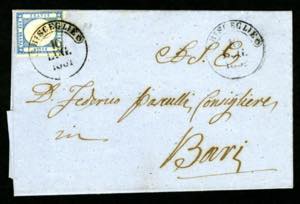 BISCEGLIE
LUGL.
1861
BISCEGLIE
A. S. E.
D. Federico Pasculli Consigliere
in
Bari